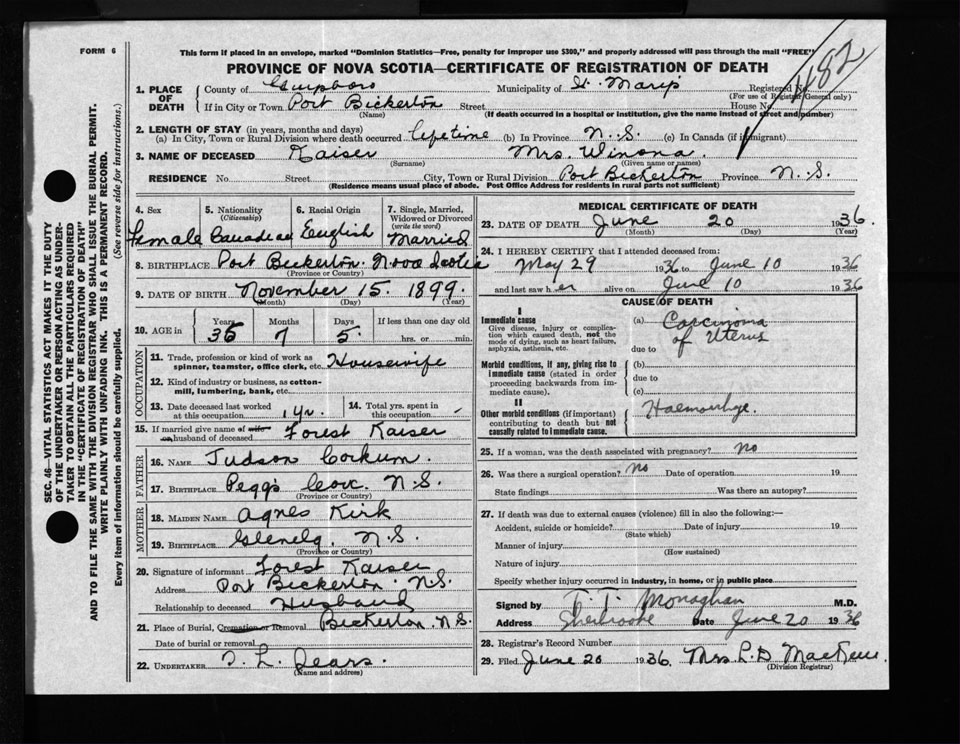 FORM 6
This form if placed in an envelope, marked "Dominion Statistics—Free, penalty for improper use $300," and properly addressed will pass through the mail "FREE"
PROVINCE OF NOVA SCOTIA—CERTIFICATE OF REGISTRATION OF DEATH
1182
1. PLACE OF DEATH
County of Guysboro Municipality of St. Marys Registered No.
(For use of Registrar General only)
If in City or Town Port Bickerton Street House No.
(Name) (If death occurred in a hospital or institution, give the name instead of street and number)
2. LENGTH OF STAY (in years, months and days)
(a) In City, Town or Rural Division where death occurred lifetime (b) In Province N.S. (c) In Canada (if immigrant)
3. NAME OF DECEASED Kaiser Mrs. Winona.
(Surname) (Given name or names)
RESIDENCE No. Street City, Town or Rural Division Port Bickerton Province N.S.
(Residence means usual place of abode. Post Office Address for residents in rural parts not sufficient)
SEC. 46—VITAL STATISTICS ACT MAKES IT THE DUTY
OF THE UNDERTAKER OR PERSON ACTING AS UNDER-
TAKER TO OBTAIN ALL THE PARTICULARS REQUIRED
IN THE "CERTIFICATE OF REGISTRATION OF DEATH"
AND TO FILE THE SAME WITH THE DIVISION REGISTRAR WHO SHALL ISSUE THE BURIAL PERMIT.
WRITE PLAINLY WITH UNFADING INK. THIS IS A PERMANENT RECORD.
Every item of information should be carefully supplied. (See reverse side for instructions.)
4. Sex 5. Nationality (Citizenship) 6. Racial Origin 7. Single, Married, Widowed or Divorced (write the word)
Female Canadian English Married
8. BIRTHPLACE Port Bickerton Nova Scotia
(Province or Country)
9. DATE OF BIRTH November 15. 1899.
(Month) (Day) (Year)
10. AGE in Years Months Days If less than one day old
36 7 5 hrs. or min.
OCCUPATION
11. Trade, profession or kind of work as spinner, teamster, office clerk, etc. Housewife
12. Kind of industry or business, as cotton-mill, lumbering, bank, etc.
13. Date deceased last worked at this occupation 1 yr. 14. Total yrs. spent in this occupation
15. If married give name of wife or husband of deceased Forest Kaiser
FATHER
16. NAME Judson Corkum.
17. BIRTHPLACE Peggs Cove. N.S.
(Province or Country)
MOTHER
18. MAIDEN NAME Agnes Kirk
19. BIRTHPLACE Glenelg, N.S.
(Province or Country)
20. Signature of informant Forest Kaiser
Address Port Bickerton N.S.
Relationship to deceased Husband
21. Place of Burial, Cremation or Removal Bickerton N.S.
Date of burial or removal
22. UNDERTAKER L. Jears.
(Name and address)
MEDICAL CERTIFICATE OF DEATH
23. DATE OF DEATH June 20 1936.
(Month) (Day) (Year)
24. I HEREBY CERTIFY that I attended deceased from:
May 29 1936 to June 10 1936
and last saw her alive on June 10 1936
CAUSE OF DEATH
I
Immediate cause
Give disease, injury or complication which caused death, not the mode of dying, such as heart failure, asphyxia, asthenia, etc.
(a) Carcinoma of Uterus
due to
Morbid conditions, if any, giving rise to immediate cause (stated in order proceeding backwards from immediate cause).
(b)
due to
(c)
II
Other morbid conditions (if important) contributing to death but not causally related to immediate cause.
Haemorrhge.
25. If a woman, was the death associated with pregnancy? no
26. Was there a surgical operation? no Date of operation 19
State findings Was there an autopsy?
27. If death was due to external causes (violence) fill in also the following:—
Accident, suicide or homicide? Date of injury 19
(State which)
Manner of injury
(How sustained)
Nature of injury
Specify whether injury occurred in industry, in home, or in public place
Signed by T. T. Monaghan M.D.
Address Sherbrooke Date June 20 1936
28. Registrar's Record Number
29. Filed June 20 1936. Mrs. L. D
(Division Registrar)